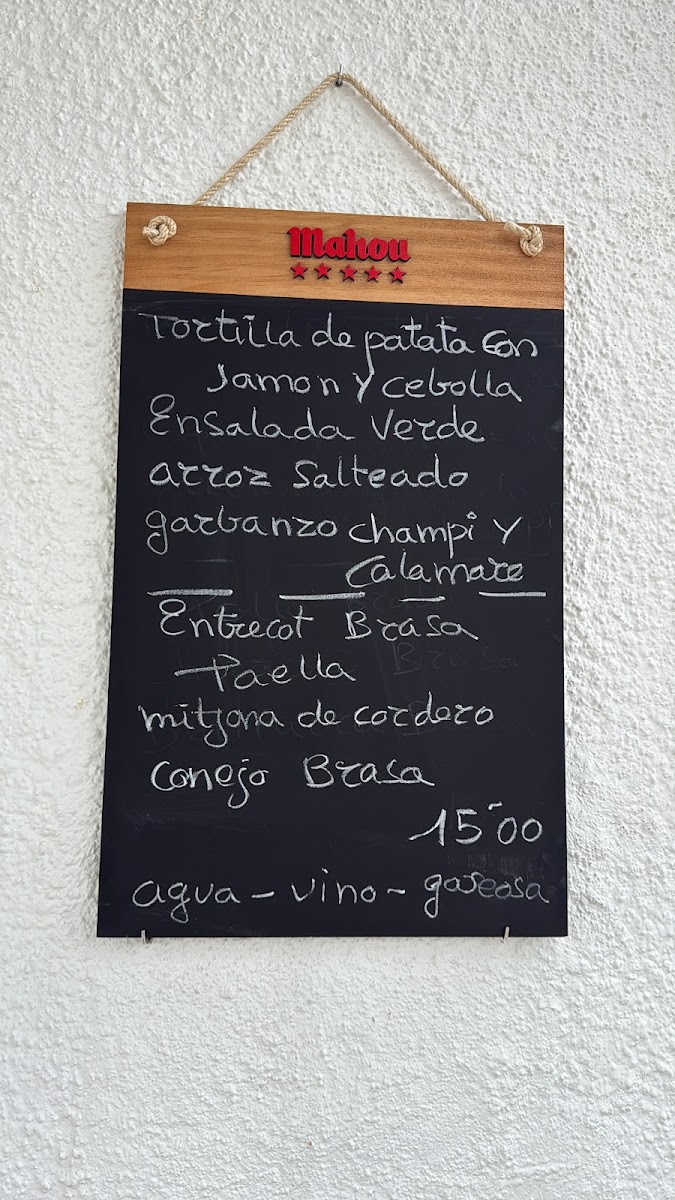 Mahou
Tortilla de patata con
Jamon y cebolla
Ensalada Verde
arroz Salteado
garbanzo champi y
Calamare
Entrecot Brasa
Paella
mitjana de cordero
conejo Brasa
15'00
agua - vino - gaseosa